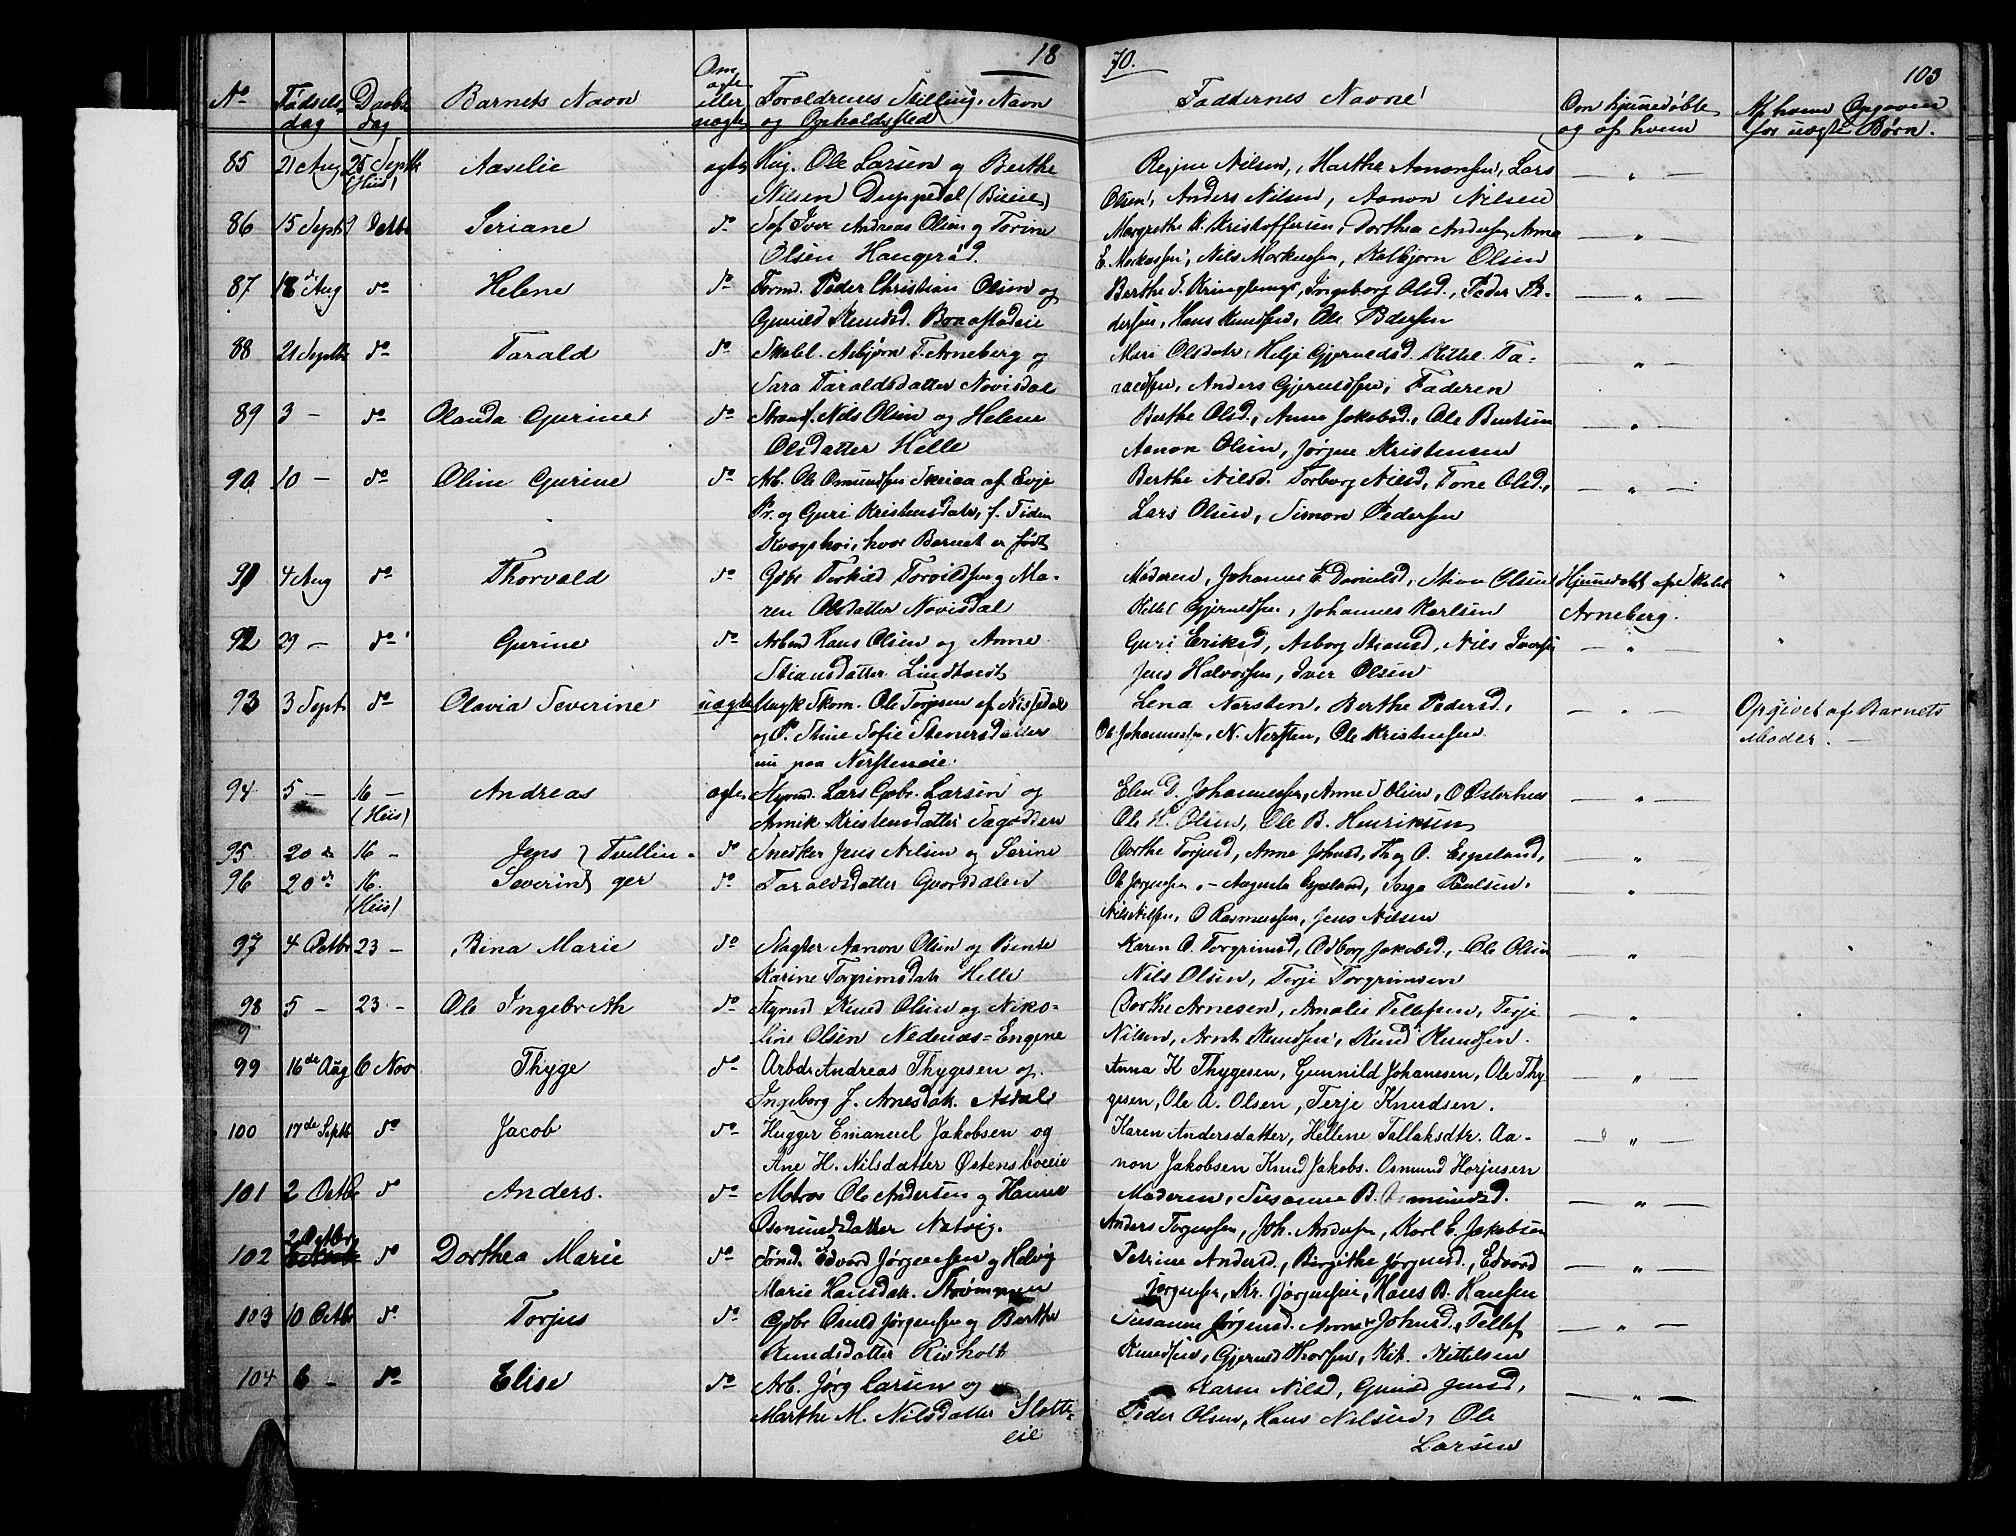 18
70.
103
No
Fødsels-
dag
Daabs
dag
Barnets Navn
Om
ægte
eller
uægte
Forældrenes Stilling, Navn
og Opholdssted
Faddernes Navne
Om hjemmedøbte
og af hvem
Af hvem Opgaven
for uægte Børn.
85 21 Aug 25 Septb (Hiis) Aaselie ægte Hug. Ole Larsen og Berthe
Nilsen Duppedal (Bieie)
Regine Nilsen, Marthe Aanonsen, Lars
Olsen, Anders Nilsen, Aanon Nilsen
86 15 Septb Do Seriane do Søf. Iver Andreas Olsen og Torine
Olsen Haugerød.
Margrethe K. Kristoffersen, Dorthea Andersen, Anna
E. Markussen, Nils Markussen, Kolbjørn Olsen
87 18de Aug do Helene do Tømd. Peder Christian Olsen og
Gunild Knudsd. Braastadeie
Berthe S. Kringlemyr, Ingeborg Olsd., Peder Pe-
dersen, Hans Knudsen, Ole Pedersen
88 21 Septbr do Tarald do Skolel. Asbjørn T. Arneberg og
Sara Taraldsdatter Novisdal
Mari Olsdatr, Helje Gjeruldsd. Kittel Ta-
raldsen, Anders Gjeruldsen, Faderen
89 3 — do Olanda Gurine do Strandf. Nils Olsen og Helene
Olsdatter Helle
Berthe Olsd., Anne Jakobsd., Ole Bentsen
Aanon Olsen, Jørgen Kristensen
90 10 — do Oline Gurine do Arb. Ole Osmundsen Skeiaa af Evje
Pr. og Guri Kristensdatr, f. Tiden
Kvagshei, hvor Barnet er født
Berthe Nilsd. Torborg Nilsd, Tone Olsd.,
Lars Olsen, Simon Pedersen
91 4 Aug do Thorvald do Gdbr Terkild Torvildsen og Ma-
ren Olsdatter Novisdal
Moderen, Johanne E. Danielsd, Stian Olsen
Kittel Gjeruldsen, Johannes Karlsen
Hjemmedøbt af Skolel.
Arneberg.
92 29 — do Gurine do Arbmd Hans Olsen og Anne
Stiansdatter Lindtveit
Guri Eriksd, Asborg Stiansd, Nils Iversen
Jens Halvorsen, Iver Olsen
93 3 Sept. do Olavia Severine uægte Ungk Skom. Ole Torjesen af Nissedal
og P. Stine Sofie Stenersdatter
nu paa Nersteneie.
Lena Nersten, Berthe Pedersd,
Ole Johannessen, N. Nersten, Ole Kristensen
Opgivet af Barnets
Moder. —
94 5 — 16 — (Hiis) Andreas ægte Styrmd. Lars Gabr. Larsen og
Annik Kristensdatter Sagodden
Elen D. Johannessen, Anne J Olsen, O Østerhus
Ole H. Olsen, Ole B. Henriksen
95 20 de 16 — Jens } Tvillin- do Snedker Jens Nilsen og Serine
Dorthe Torjusd, Anne Johnsd, Th og O. Espeland,
96 20 de 16. (Hiis) Severin } ger do Taraldsdatter Gaardsdalen
Ole Jørgensen, — Augusta Espeland, Inga Paulsen,
Nils Nilsen, O Rasmussen, Jens Nilsen
97 4 Octbr 23 — Bina Marie do Slagter Aanon Olsen og Bente
Karine Torgrimsdatr Helle
Karen O. Torgrimsd, Odborg Jakobsd, Ole Olsen
Nils Olsen, Terje Torgrimsen
98 5 — 23 — Ole Ingebreth do Styrmd Knud Olsen og Niko-
line Olsen Nedenæs=Engene
Dorthe Arnesen, Amalie Tellefsen, Terje
Nilsen, Arnt Knudsen, Knud Knudsen.
99 16de Aug 6 Nov Thyge do Arbdr Andreas Thygesen og
Ingeborg J. Arnesdatr. Asdal
Anna K Thygesen, Gunnild Johanesen, Ole Thy-
gesen, Ole A. Olsen, Terje Knudsen.
100 17de Septb do Jacob do Hugger Emanuel Jakobsen og
Ane H. Nilsdatter Østensbueie
Karen Andersdatter, Hellene Tallaksdtr. Aa-
non Jakobsen Knud Jakobs. Osmund Horjusen
101 2 Octbr do Anders. do Matros Ole Andersen og Hanne
Osmundsdatter Natvig.
Moderen, Susanne B. Osmundsd.
Anders Torgersen, Joh. Andersen, Karl E. Jakobsen
102 2 Octbr do Dorthea Marie do Tømd. Edvard Jørgensen og Helvig
Marie Hansdatr. Strømmen
Petrine Andersd, Birgithe Jørgensd, Edvard
Jørgensen, Kr. Jørgensen, Hans B. Hansen
103 10 Octbr do Torjus do Gdbr Osuld Jørgensen og Berthe
Knudsdatter Risholt
Susanne Jørgensd. Anne Johnsd, Tellef
Knudsen, Gjeruld Thorsen, Kit. Kittelsen
104 6 — do Elise do Arb. Jørg Larsen og
Marthe M. Nilsdatter Slotte-
eie
Karen Nilsd, Gunild Jensd,
Peder Olsen, Hans Nilsen, Ole
Larsen